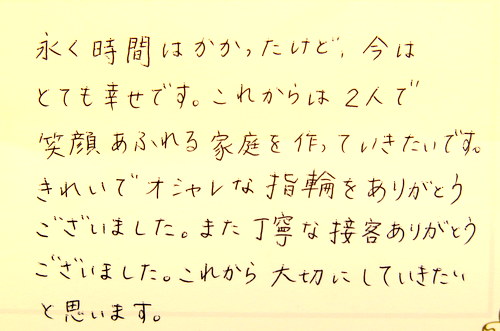 永く時間はかかったけど、今は
とても幸せです。これからは2人で
笑顔あふれる家庭を作っていきたいです。
きれいでオシャレな指輪をありがとう
ございました。また丁寧な接客ありがとう
ございました。これから大切にしていきたい
と思います。